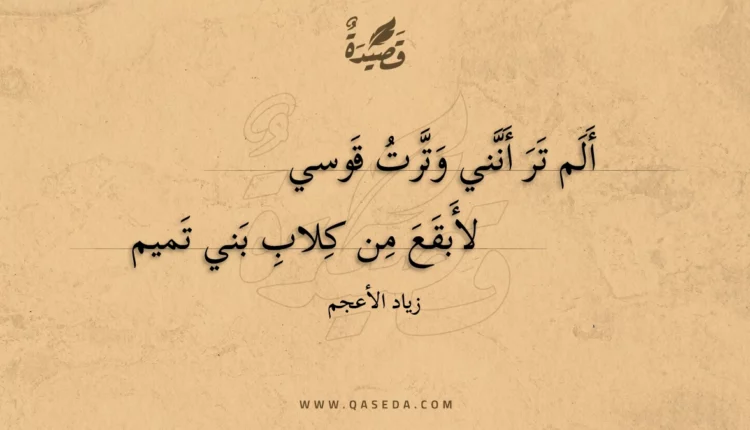 قَصِيْدَةٌ
أَلَم تَرَ أَنَّني وَتَّرتُ قَوسي
لأَبقَعَ مِن كِلابِ بَني تَميم
زياد الأعجم
WWW.QASEDA.COM